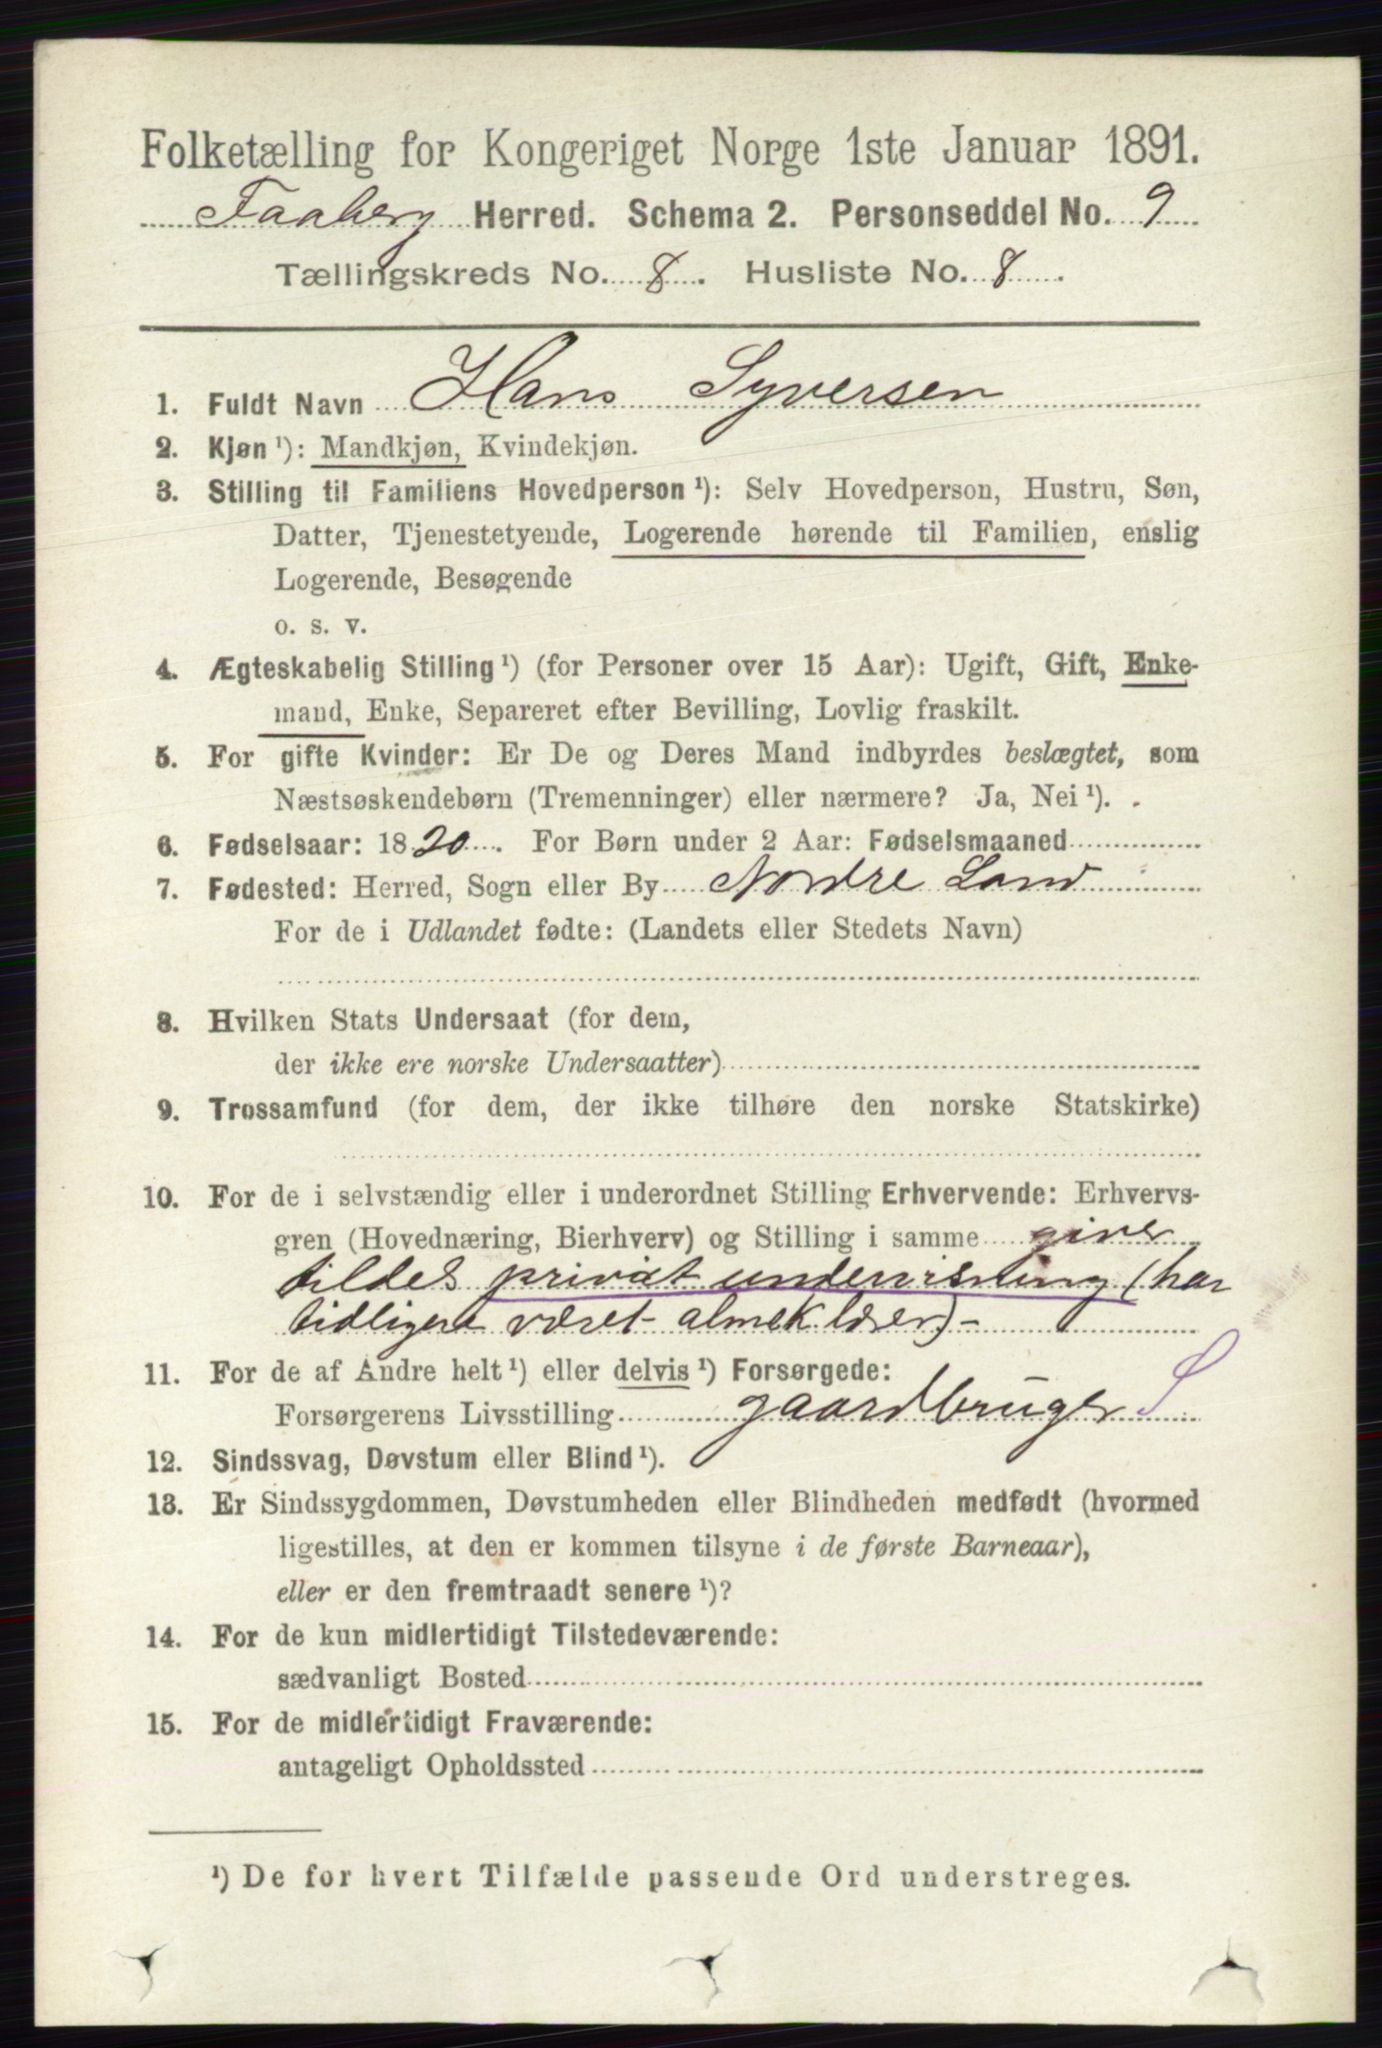 Folketælling for Kongeriget Norge 1ste Januar 1891.
Faaberg Herred. Schema 2. Personseddel No. 9
Tællingskreds No. 8. Husliste No. 8.
1. Fuldt Navn Hans Syversen
2. Kjøn ¹): Mandkjøn, Kvindekjøn.
3. Stilling til Familiens Hovedperson ¹): Selv Hovedperson, Hustru, Søn,
Datter, Tjenestetyende, Logerende hørende til Familien, enslig
Logerende, Besøgende
o. s. v.
4. Ægteskabelig Stilling ¹) (for Personer over 15 Aar): Ugift, Gift, Enke-
mand, Enke, Separeret efter Bevilling, Lovlig fraskilt.
5. For gifte Kvinder: Er De og Deres Mand indbyrdes beslægtet, som
Næstsøskendebørn (Tremenninger) eller nærmere? Ja, Nei ¹).
6. Fødselsaar: 1820. For Børn under 2 Aar: Fødselsmaaned
7. Fødested: Herred, Sogn eller By Nordre Land
For de i Udlandet fødte: (Landets eller Stedets Navn)
8. Hvilken Stats Undersaat (for dem,
der ikke ere norske Undersaatter)
9. Trossamfund (for dem, der ikke tilhøre den norske Statskirke)
10. For de i selvstændig eller i underordnet Stilling Erhvervende: Erhvervs-
gren (Hovednæring, Bierhverv) og Stilling i samme giver
tildels privat undervisning (har
tidligere været almsk lærer)-
11. For de af Andre helt ¹) eller delvis ¹) Forsørgede:
Forsørgerens Livsstilling gaardbruger S
12. Sindssvag, Døvstum eller Blind ¹).
13. Er Sindssygdommen, Døvstumheden eller Blindheden medfødt (hvormed
ligestilles, at den er kommen tilsyne i de første Barneaar),
eller er den fremtraadt senere ¹)?
14. For de kun midlertidigt Tilstedeværende:
sædvanligt Bosted
15. For de midlertidigt Fraværende:
antageligt Opholdssted
¹) De for hvert Tilfælde passende Ord understreges.